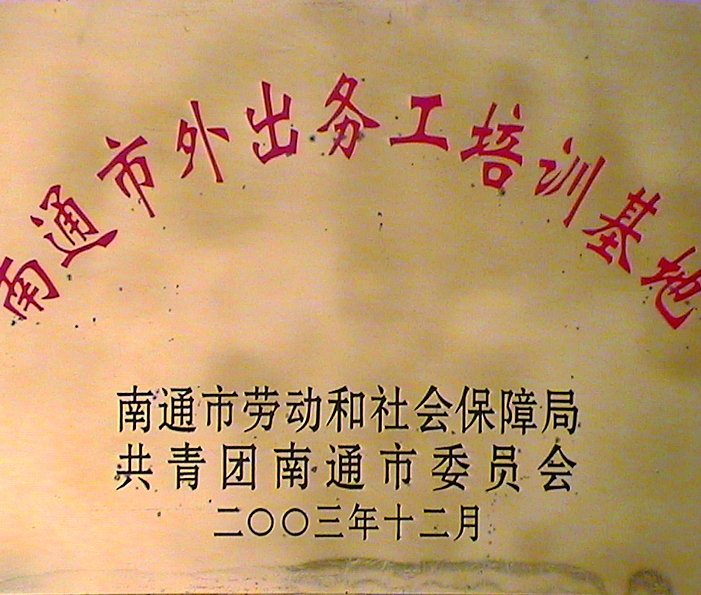 南通市外出务工培训基地
南通市劳动和社会保障局
共青团南通市委员会
二〇〇三年十二月